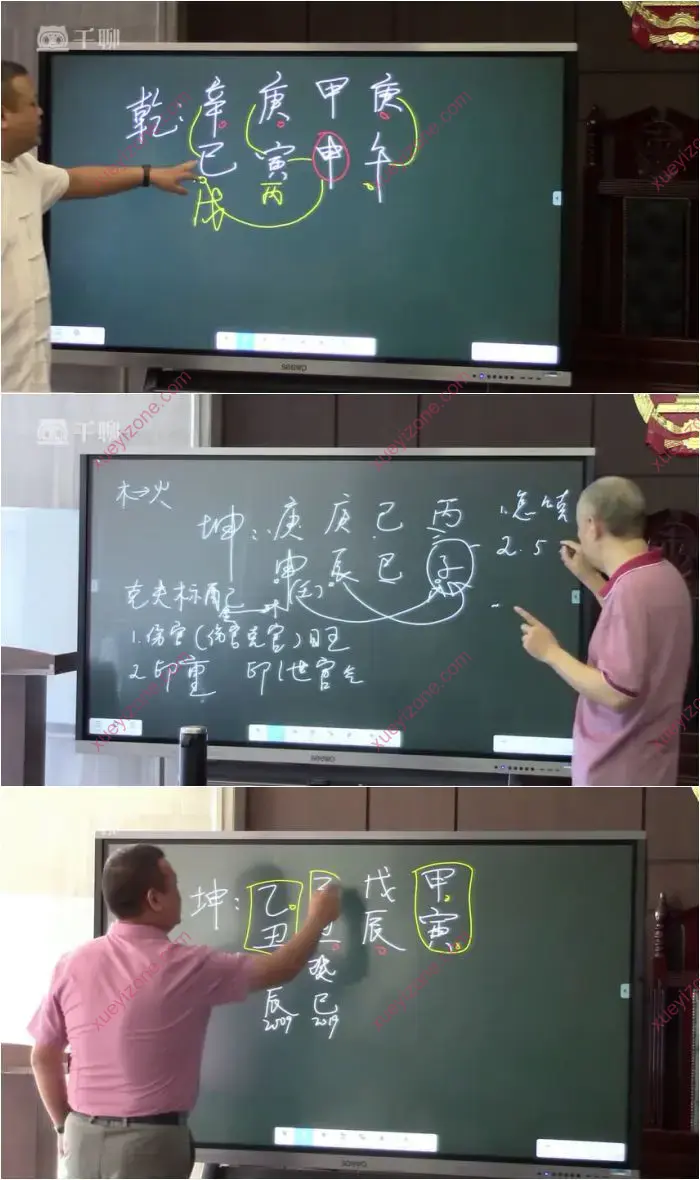 千聊
乾: 辛 庚 甲 庚
巳 寅 申 午
戊 丙
seewo
xueyizone.com
xueyizone.com
千聊
木⇒火
坤: 庚 庚 己 丙
申 辰 巳 子
1.怎
2.5
克夫标配
1.伤官(伤官克官)旺
2.印重 印泄官气
seewo
xueyizone.com
xueyizone.com
xueyizone.com
xueyizone.com
坤: 乙 戊 甲
丑 丑 辰 寅
癸
辰 巳
2009 2019
seewo
xueyizone.com
xueyizone.com